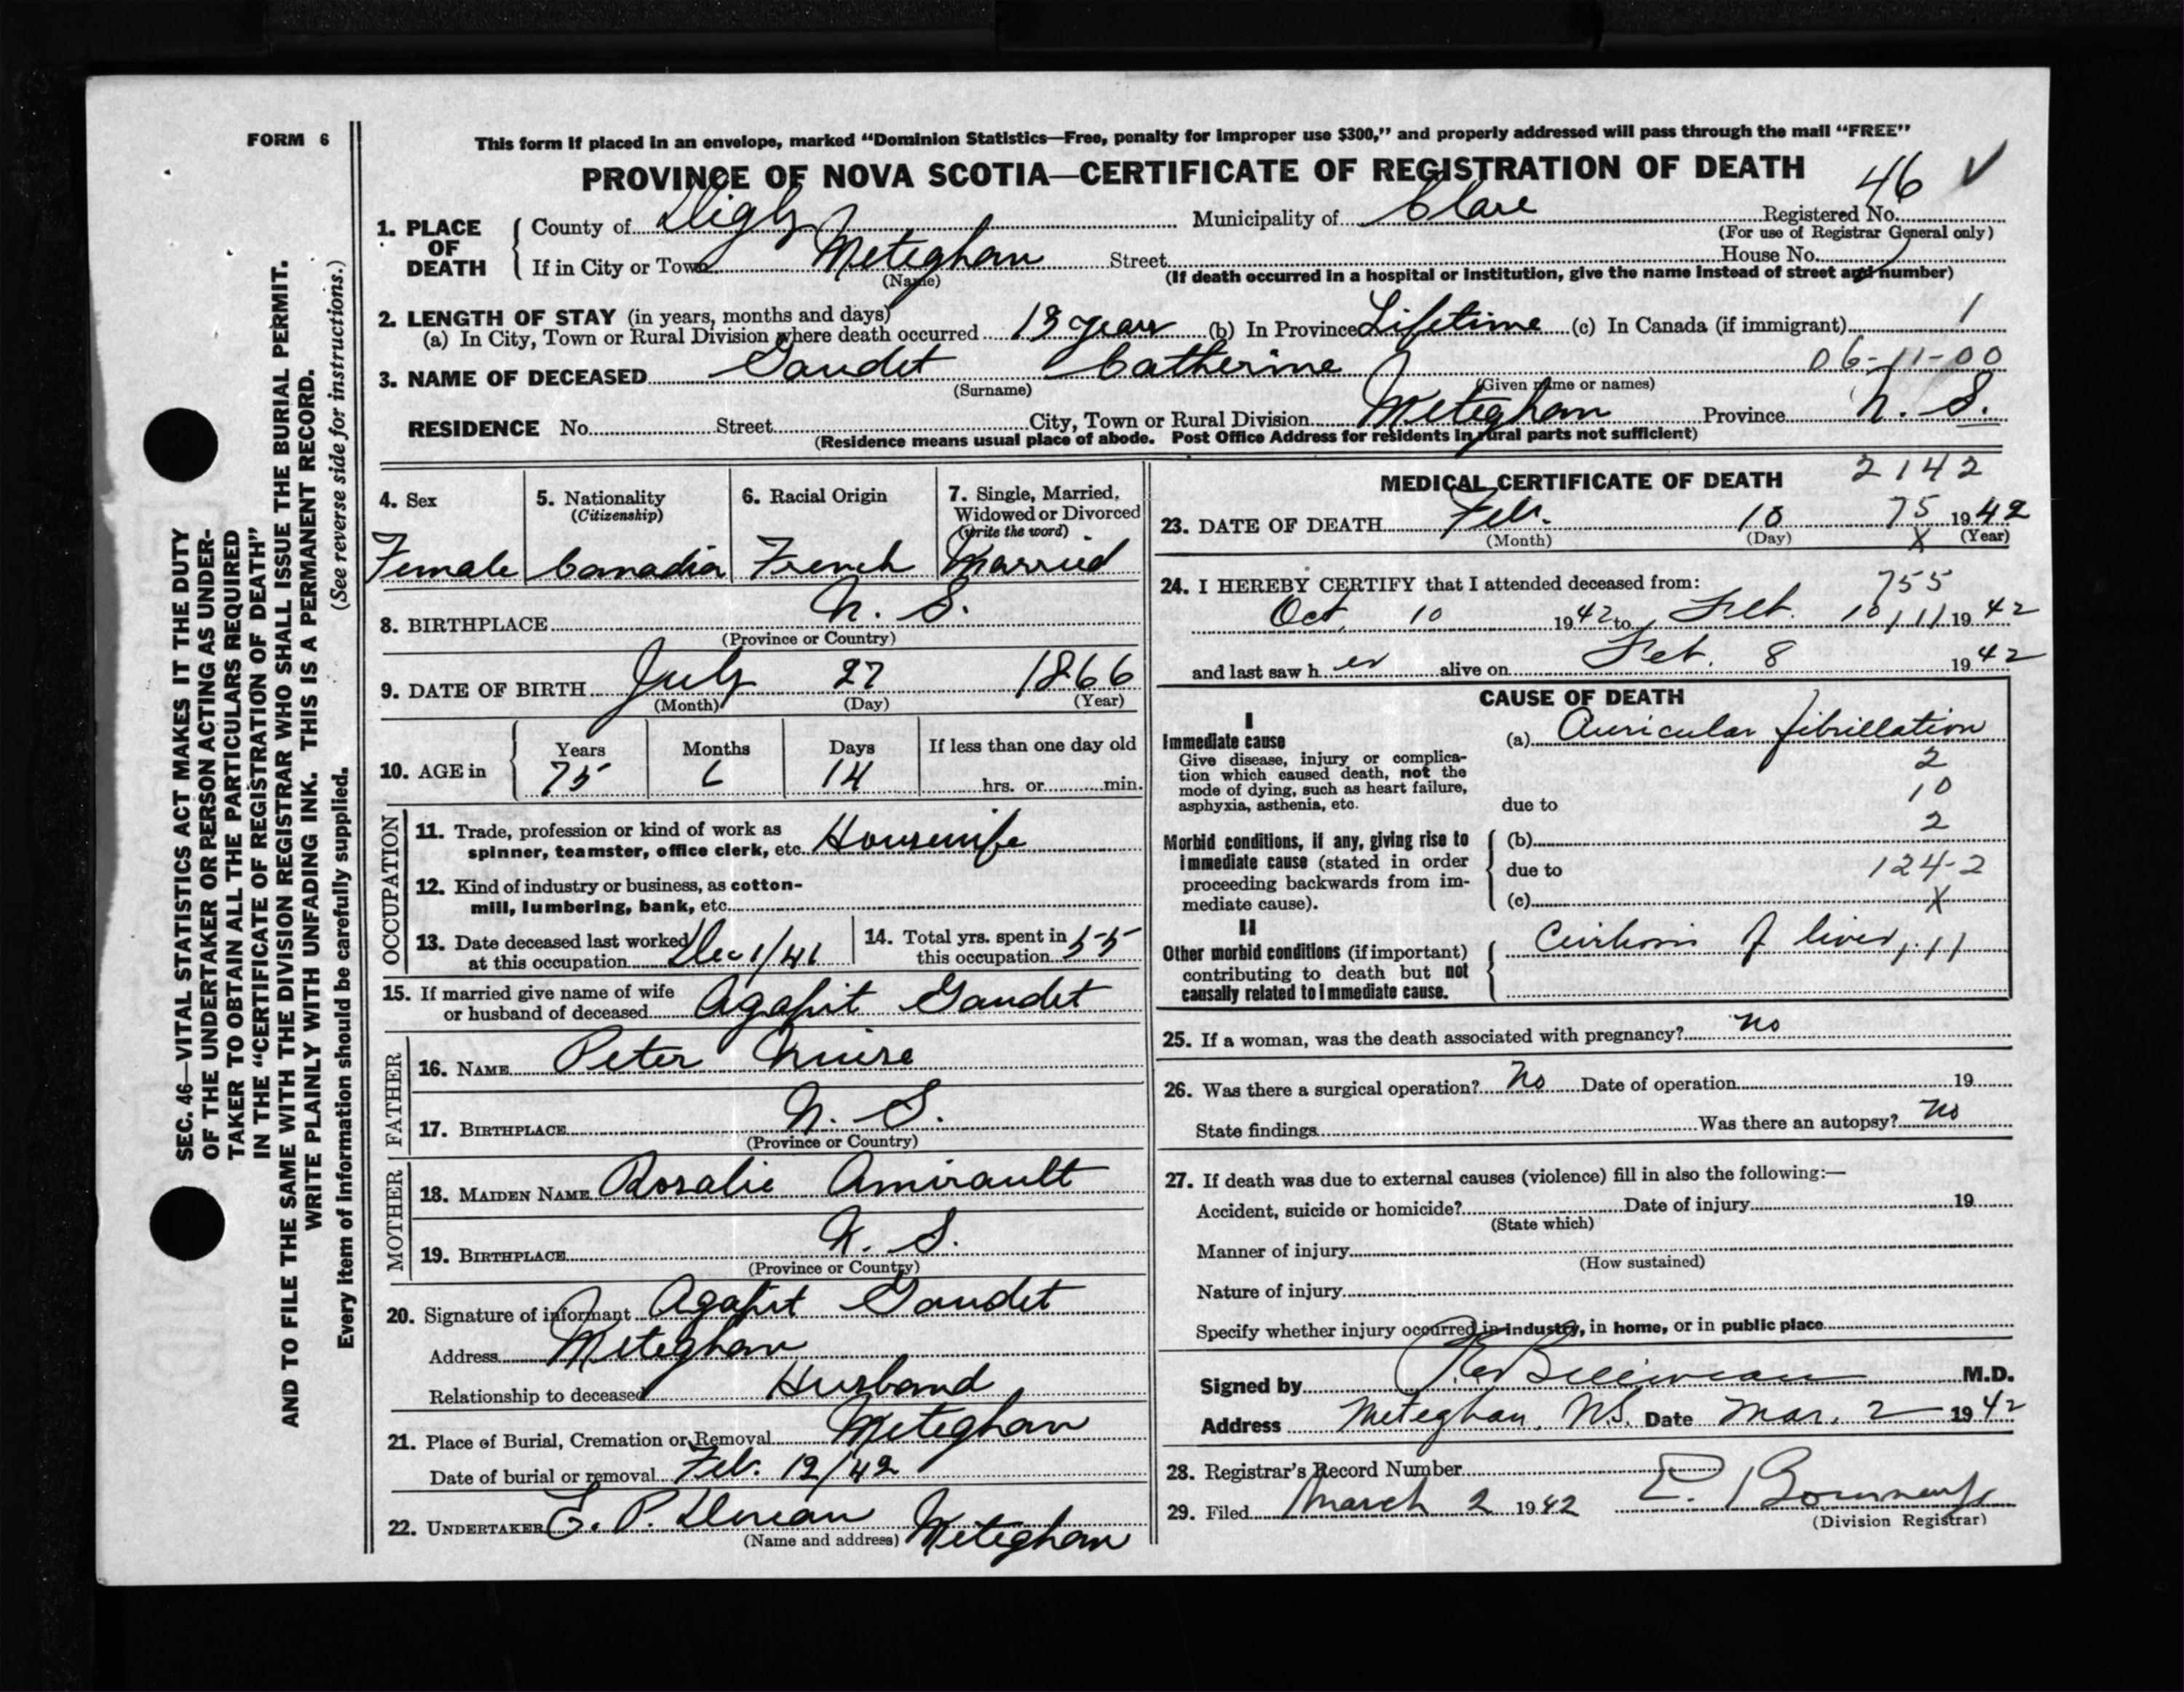 FORM 6
This form if placed in an envelope, marked “Dominion Statistics—Free, penalty for improper use $300,” and properly addressed will pass through the mail “FREE”
PROVINCE OF NOVA SCOTIA—CERTIFICATE OF REGISTRATION OF DEATH
46 ✓
1. PLACE OF DEATH
County of Digby Municipality of Clare Registered No.
(For use of Registrar General only)
If in City or Town Meteghan Street House No.
(Name) (If death occurred in a hospital or institution, give the name instead of street and number)
2. LENGTH OF STAY (in years, months and days)
(a) In City, Town or Rural Division where death occurred 13 years (b) In Province Lifetime (c) In Canada (if immigrant) /
06-11-00
3. NAME OF DECEASED Gaudet Catherine
(Surname) (Given name or names)
RESIDENCE No. Street City, Town or Rural Division Meteghan Province N. S.
(Residence means usual place of abode. Post Office Address for residents in rural parts not sufficient)
4. Sex
Female
5. Nationality
(Citizenship)
Canadian
6. Racial Origin
French
7. Single, Married, Widowed or Divorced
(write the word)
Married
8. BIRTHPLACE N. S.
(Province or Country)
9. DATE OF BIRTH July 27 1866
(Month) (Day) (Year)
10. AGE in Years Months Days If less than one day old
75 6 14 hrs. or min.
OCCUPATION
11. Trade, profession or kind of work as
spinner, teamster, office clerk, etc. Housewife
12. Kind of industry or business, as cotton-
mill, lumbering, bank, etc.
13. Date deceased last worked
at this occupation Dec 1/41
14. Total yrs. spent in
this occupation 55
15. If married give name of wife
or husband of deceased Agapit Gaudet
FATHER
16. NAME Peter Muise
17. BIRTHPLACE N. S.
(Province or Country)
MOTHER
18. MAIDEN NAME Rosalie Amirault
19. BIRTHPLACE N. S.
(Province or Country)
20. Signature of informant Agapit Gaudet
Address Meteghan
Relationship to deceased Husband
21. Place of Burial, Cremation or Removal Meteghan
Date of burial or removal Feb. 12/42
22. UNDERTAKER E. P. Meteghan
(Name and address)
MEDICAL CERTIFICATE OF DEATH 2142
23. DATE OF DEATH Feb. 10 75 1942
(Month) (Day) X (Year)
24. I HEREBY CERTIFY that I attended deceased from: 755
Oct 10 1942 to Feb. 10/11 1942
and last saw her alive on Feb. 8 1942
CAUSE OF DEATH
I
Immediate cause
Give disease, injury or complica-
tion which caused death, not the
mode of dying, such as heart failure,
asphyxia, asthenia, etc.
(a) Auricular fibrillation
2
10
due to
2
Morbid conditions, if any, giving rise to
immediate cause (stated in order
proceeding backwards from im-
mediate cause).
(b)
due to 124-2
(c) X
II
Other morbid conditions (if important)
contributing to death but not
causally related to immediate cause.
Cirrhosis of liver
25. If a woman, was the death associated with pregnancy? no
26. Was there a surgical operation? No Date of operation 19
State findings Was there an autopsy? No
27. If death was due to external causes (violence) fill in also the following:—
Accident, suicide or homicide? Date of injury 19
(State which)
Manner of injury
(How sustained)
Nature of injury
Specify whether injury occurred in industry, in home, or in public place
Signed by Belliveau M.D.
Address Meteghan, N.S. Date Mar. 2 1942
28. Registrar's Record Number
29. Filed March 2 1942 E.
(Division Registrar)
SEC. 46—VITAL STATISTICS ACT MAKES IT THE DUTY
OF THE UNDERTAKER OR PERSON ACTING AS UNDER-
TAKER TO OBTAIN ALL THE PARTICULARS REQUIRED
IN THE “CERTIFICATE OF REGISTRATION OF DEATH”
AND TO FILE THE SAME WITH THE DIVISION REGISTRAR WHO SHALL ISSUE THE BURIAL PERMIT.
WRITE PLAINLY WITH UNFADING INK. THIS IS A PERMANENT RECORD.
Every item of information should be carefully supplied. (See reverse side for instructions.)